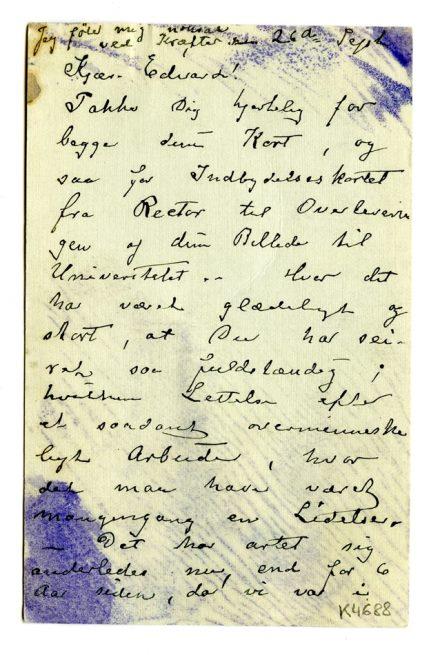 Jeg føler mig nousaa
ved Kræfter 26de Sept
Kjære Edvard!
Takke Dig hjertelig for
begge dine Kort, og
saa for Indbydelseskortet
fra Rector til Overleverin
gen af dine Billede til
Universitetet.. Hvor det
har været glædeligt og
stort, at Du har sei-
ret saa fuldstændig;
hvilken Lettelse efter
et saadant overmenneske
ligt Arbeide, hvor
det maa have været
mangengang en Lidelse.
— Det har artet sig
anderledes nu, end for 6
Aar siden, da vi var i
K4688